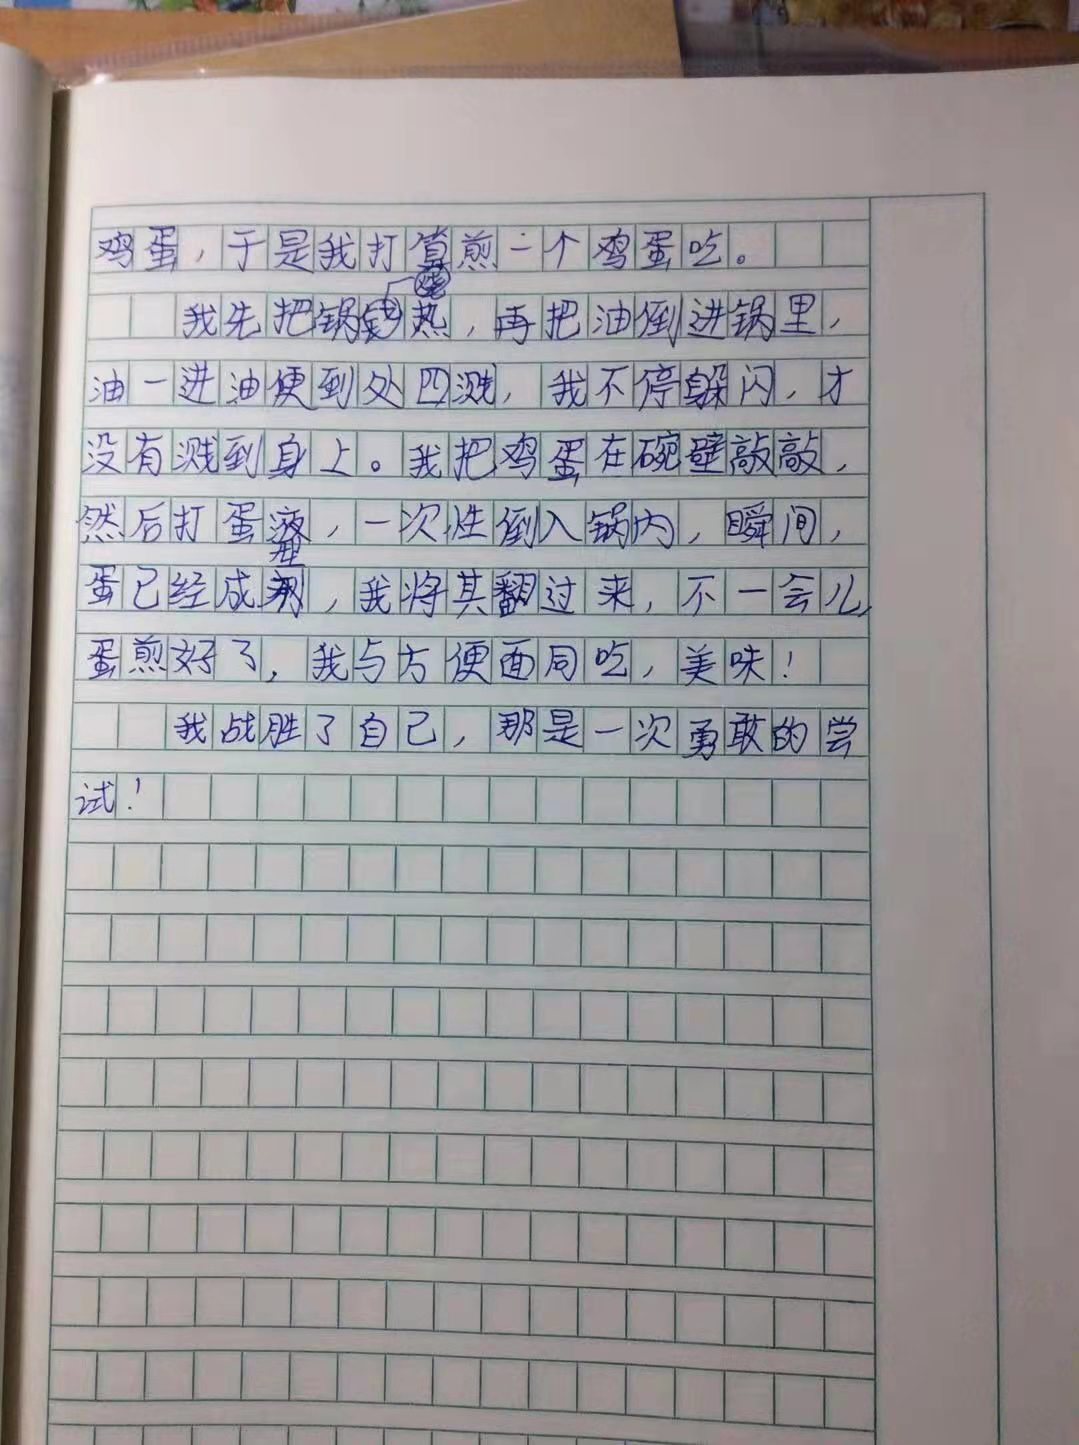 鸡蛋，于是我打算煎一个鸡蛋吃。
我先把锅烧热，再把油倒进锅里，
油一进油便到处四溅，我不停躲闪，才
没有溅到身上。我把鸡蛋在碗壁敲敲，
然后打蛋液，一次性倒入锅内，瞬间，
蛋已经成型，我将其翻过来，不一会儿，
蛋煎好了，我与方便面同吃，美味！
我战胜了自己，那是一次勇敢的尝
试！